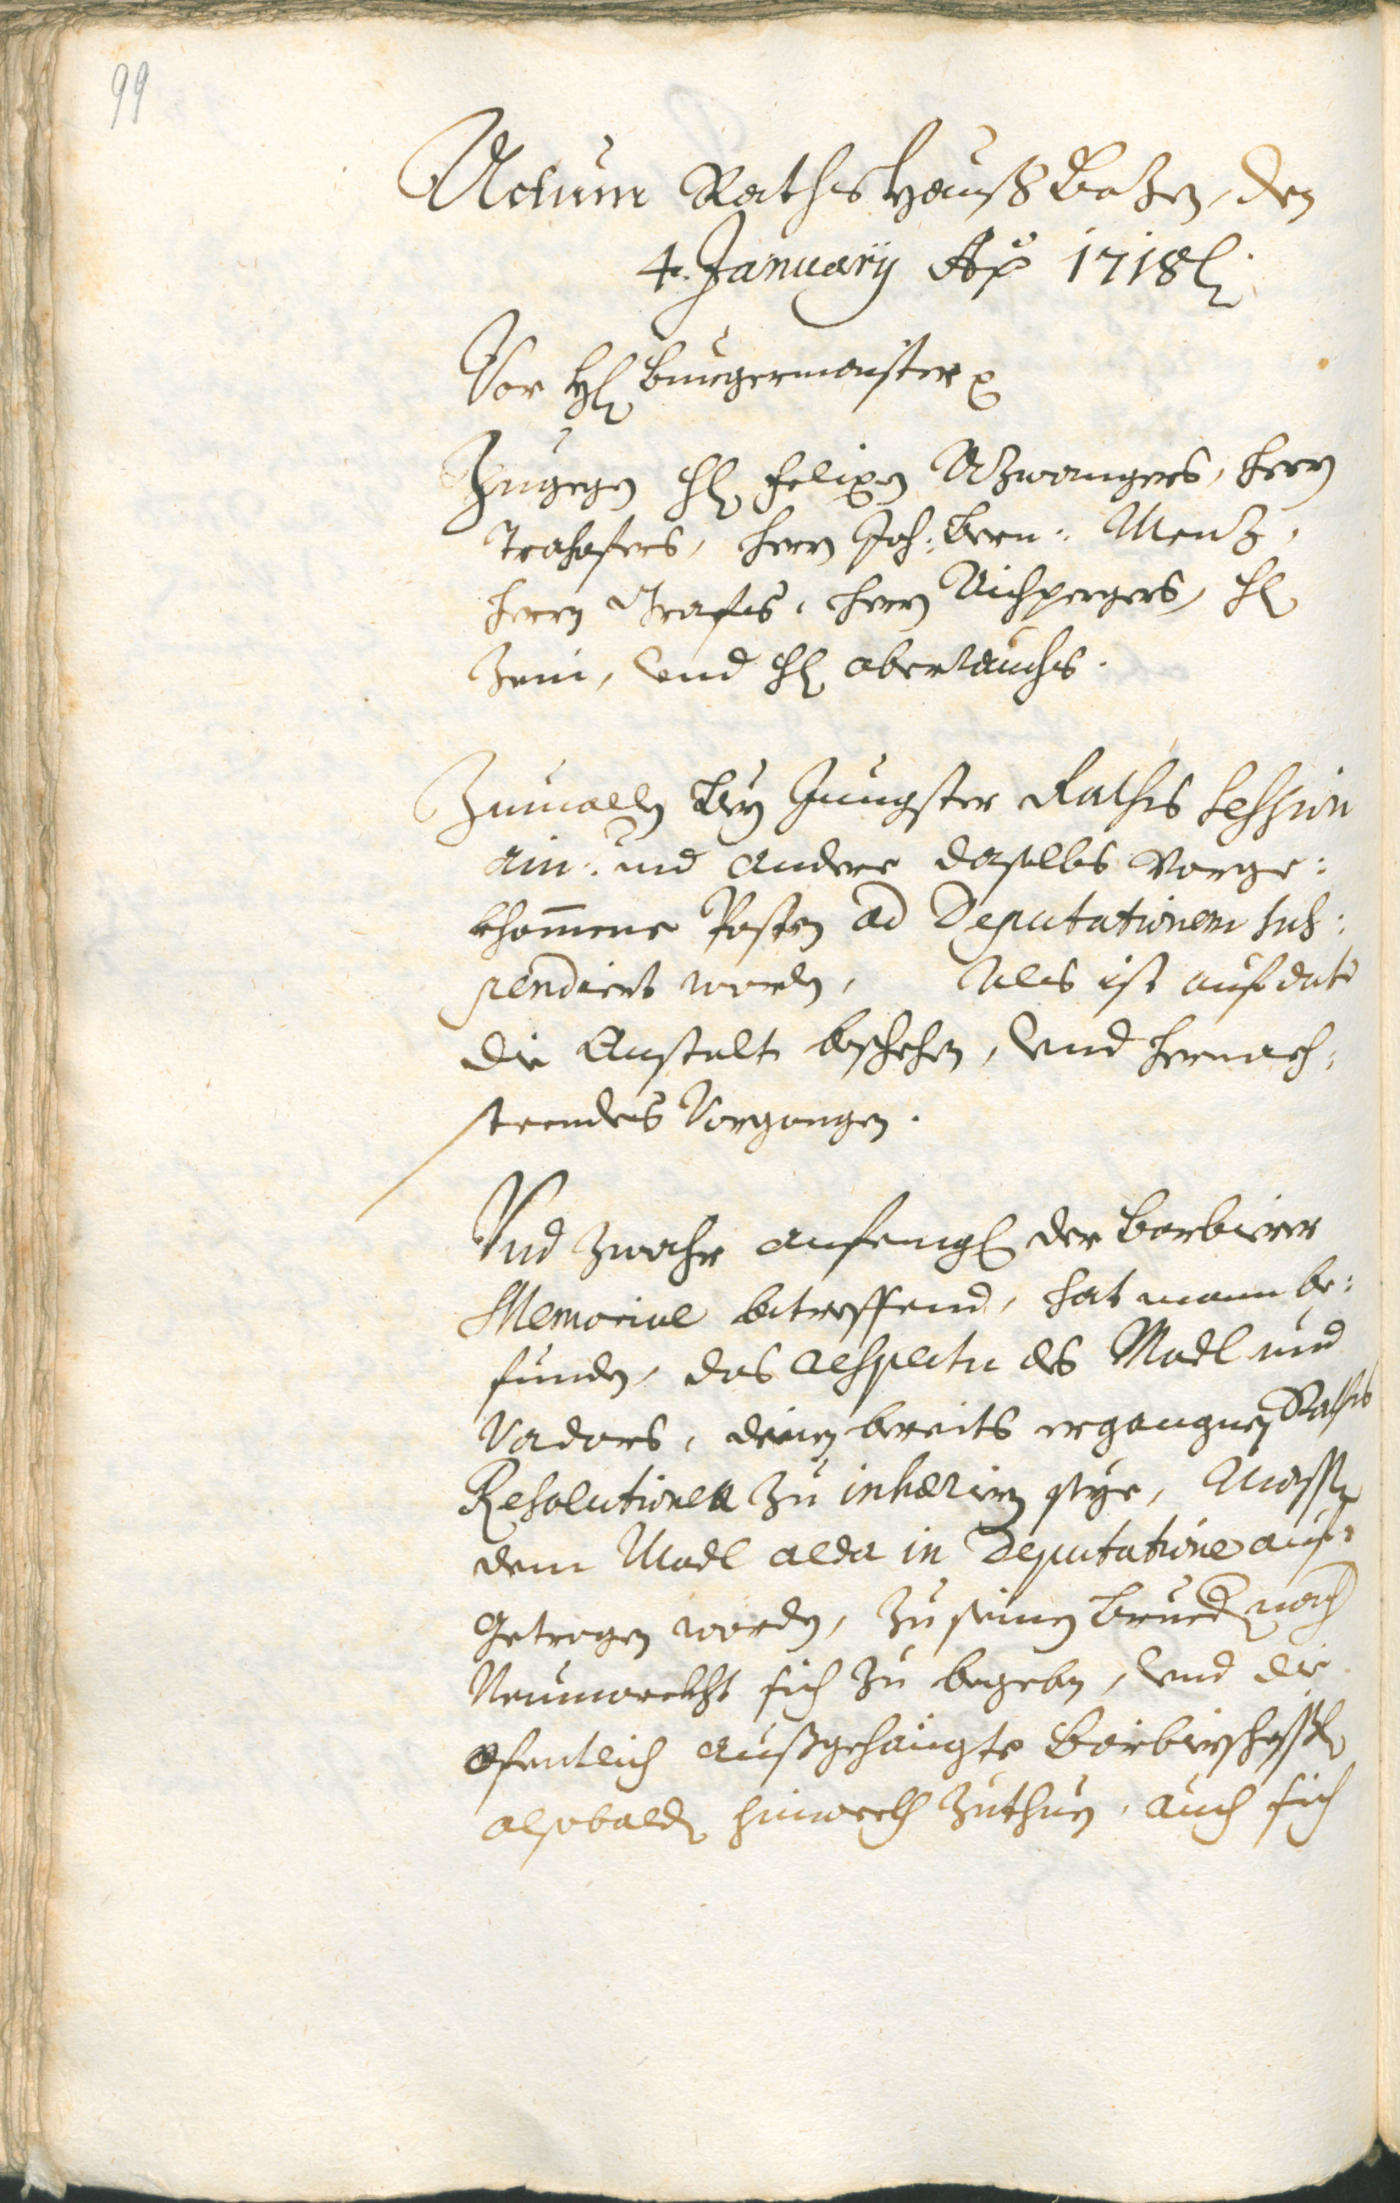 99
Actum Raths Hauß Bozen, den
4. January Aõ 1718
Vor H. Burgermaister
Zugegen H. Felixen Azwangers, Herrn
Trahofers, Herrn Joh: Bern: Menz,
Herrn Grafs, Herrn Aichpergers, H.
Zeni, und H. oberrauchs.
Zumalln Bey Jüngster Raths Session
ain: und andere daselbs vorge:
khommene Posten ad Deputationem sus:
pendiert worden, Als ist auf dato
die Anstalt beschehen, und hernach
steendes Vorgangen.
Und zwahr anfengl. der Barbierer
Memorial betreffend, hat mann be:
funden, das respectu des Madl und
Vadors, denen bereits ergangnen Raths
Resolutionen zu inhæriern seye, Massen
dem Madl alda in Deputatione auf:
getragen worden, zu seinem Brueder nach
Neumarckht sich zu begeben, und die
offentlich außgehängte Barbierschißl
alsobalden hinweckh zuthun, auch sich